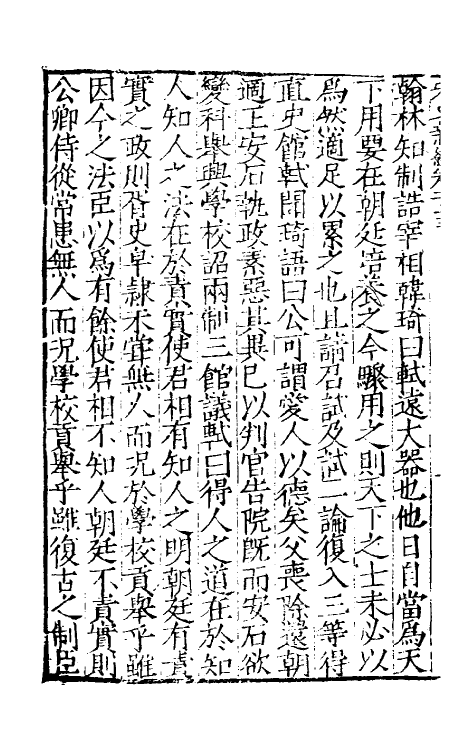 翰林知制誥宰相韓琦曰軾遠大器也他日自當爲天
下用要在朝廷培養之今驟用之則天下之士未必以
爲然適足以累之也且請召試及試二論復入三等得
直史館軾聞琦語曰公可謂愛人以德矣父喪除還朝
適王安石執政素惡其異己以判官告院旣而安石欲
變科舉興學校詔兩制三館議軾曰得人之道在於知
人知人之法在於責實使君相有知人之明朝廷有責
實之政則胥史皁隷未嘗無人而況於學校貢舉乎雖
因今之法臣以爲有餘使君相不知人朝廷不責實則
公卿侍從常患無人而況學校貢舉乎雖復古之制臣